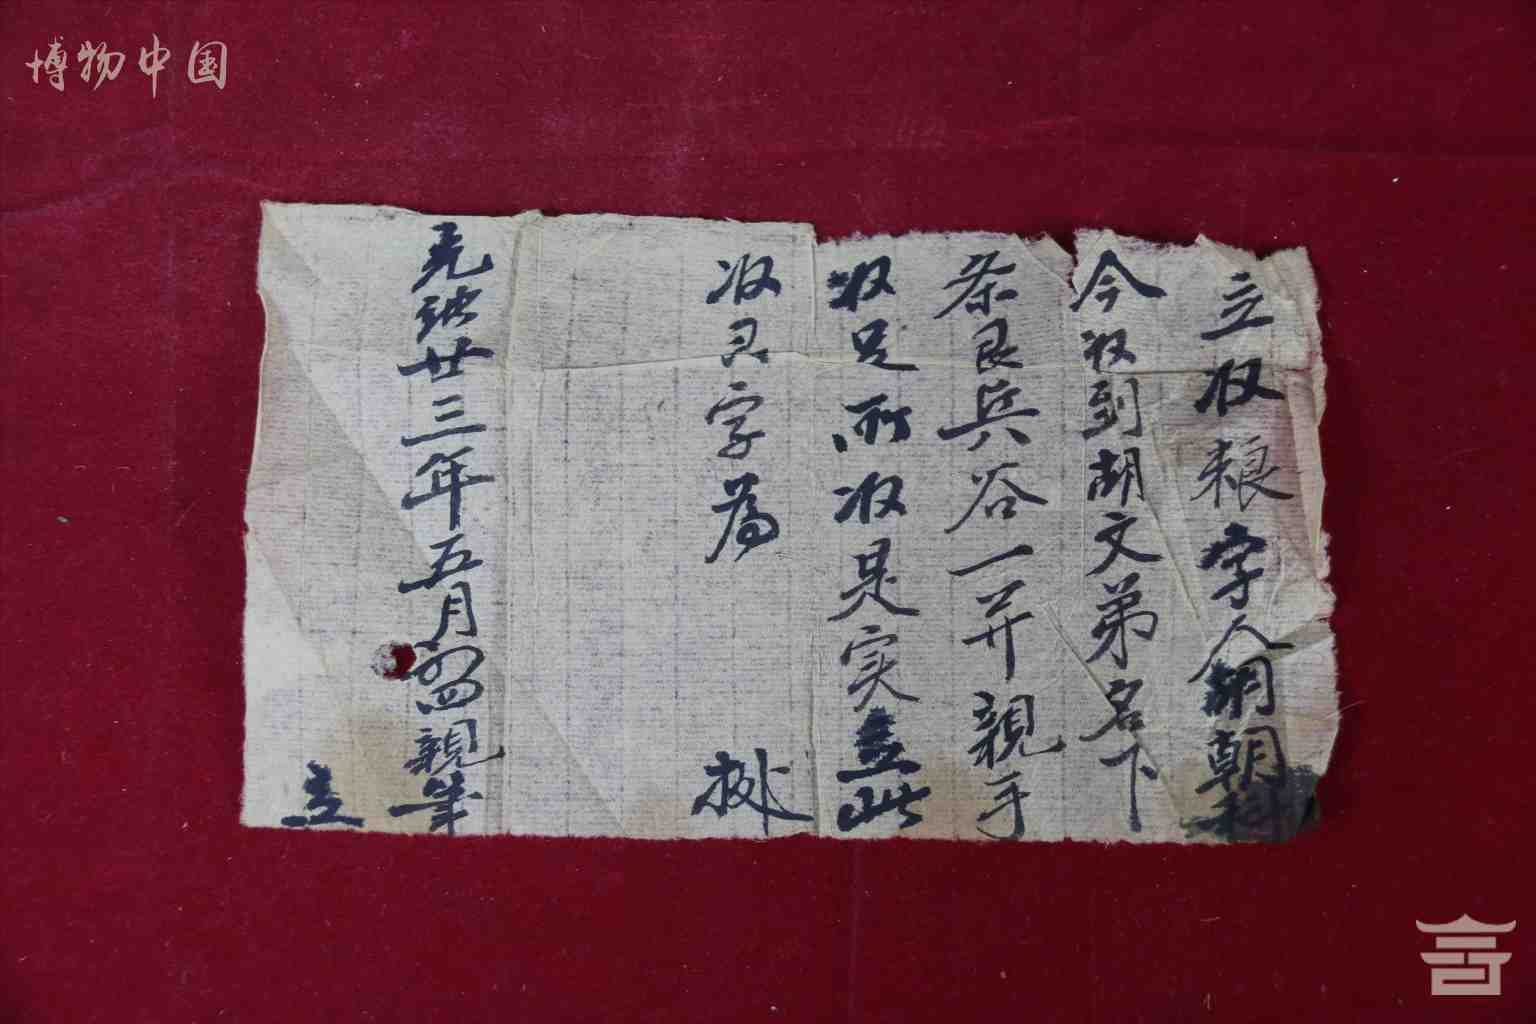 博物中国
立收粮字人胡朝
今收到胡文弟名下
条良兵谷一并親手
收足所收是实立此
收良字為
光緒廿三年五月初四親筆
立